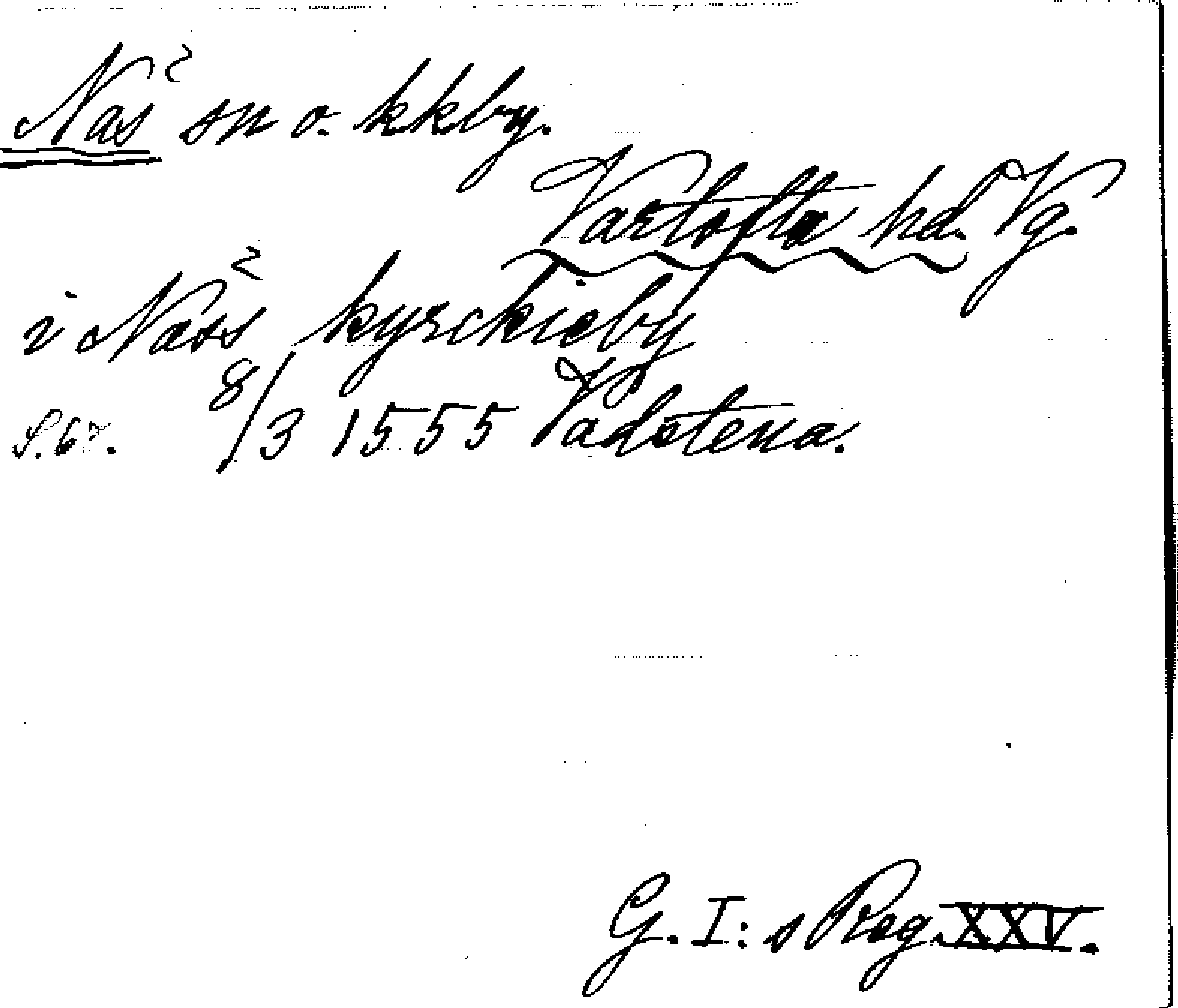 Näs sn o. kkby.
Vartofta hd. Vg.
i Näss kyrckieby
S. 67. 8/3 1555 Vadstena.
G. I: s Reg. XXV.